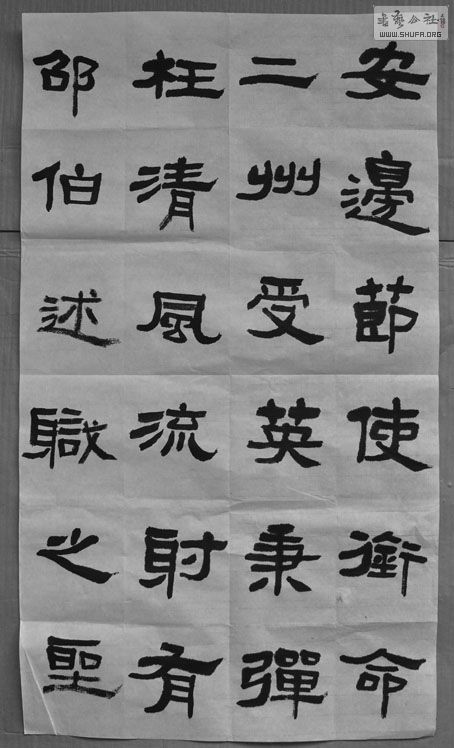 安邊節使銜命
二州受英秉彈
枉清風流射有
邵伯述職之聖
书艺公社
WWW.SHUFA.ORG